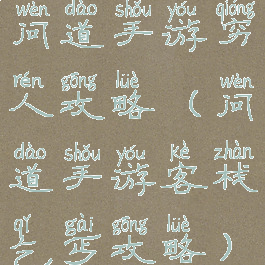 wèn dào shǒu yóu qióng
问道手游穷
rén gōng lüè wèn
人攻略(问
dào shǒu yóu kè zhàn
道手游客栈
qǐ gài gōng lüè
乞丐攻略)